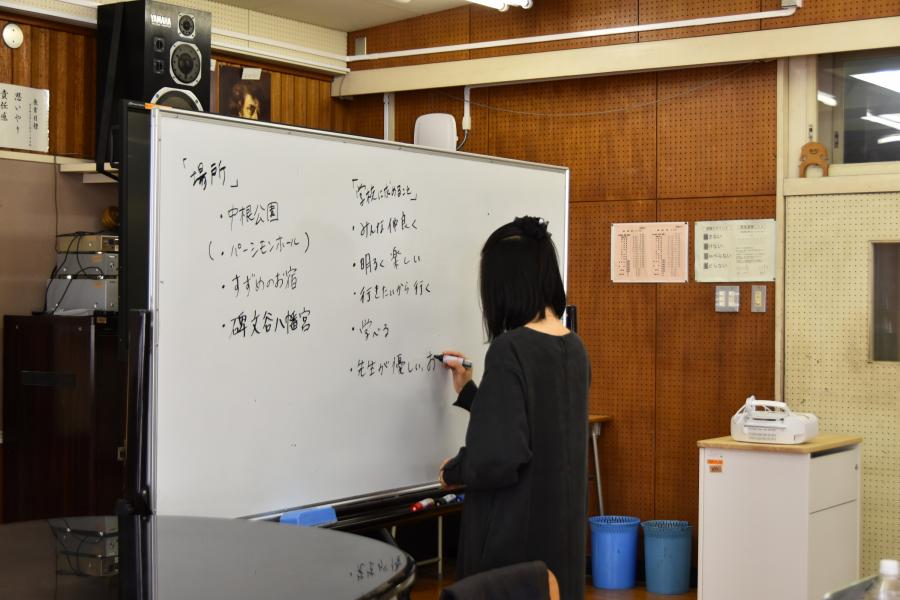 YAMAHA
教育目標
思いやり
責任感
「場所」
・中根公園
(・パーシモンホール)
・すずめのお宿
・碑文谷八幡宮
「学校に求めること」
・みんな仲良く
・明るく楽しい
・行きたいから行く
・学べる
・先生が優しい、お